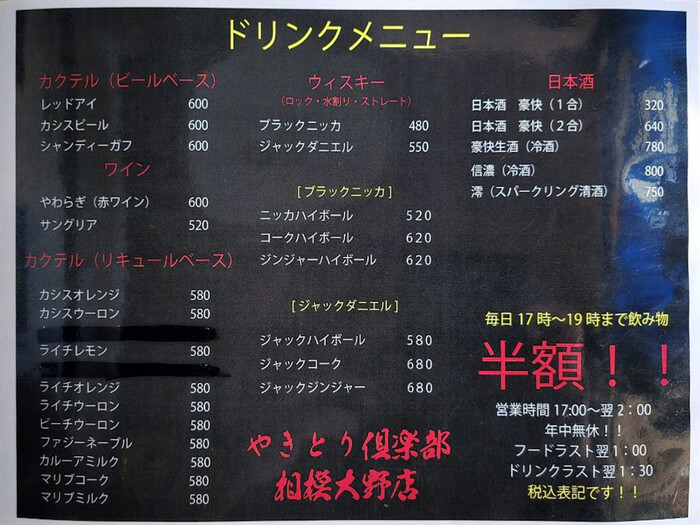 ドリンクメニュー
カクテル（ビールベース）
レッドアイ 600
カシスビール 600
シャンディーガフ 600
ワイン
やわらぎ（赤ワイン） 600
サングリア 520
カクテル（リキュールベース）
カシスオレンジ 580
カシスウーロン 580
ライチレモン 580
ライチオレンジ 580
ライチウーロン 580
ピーチウーロン 580
ファジーネーブル 580
カルーアミルク 580
マリブコーク 580
マリブミルク 580
ウィスキー
（ロック・水割り・ストレート）
ブラックニッカ 480
ジャックダニエル 550
[ ブラックニッカ ]
ニッカハイボール 520
コークハイボール 620
ジンジャーハイボール 620
[ ジャックダニエル ]
ジャックハイボール 580
ジャックコーク 680
ジャックジンジャー 680
やきとり倶楽部
相模大野店
日本酒
日本酒　豪快（１合） 320
日本酒　豪快（２合） 640
豪快生酒（冷酒） 780
信濃（冷酒） 800
澪（スパークリング清酒） 750
毎日 17 時～19 時まで飲み物
半額！！
営業時間 17:00～翌 2：00
年中無休！！
フードラスト翌 1：00
ドリンクラスト翌 1：30
税込表記です！！